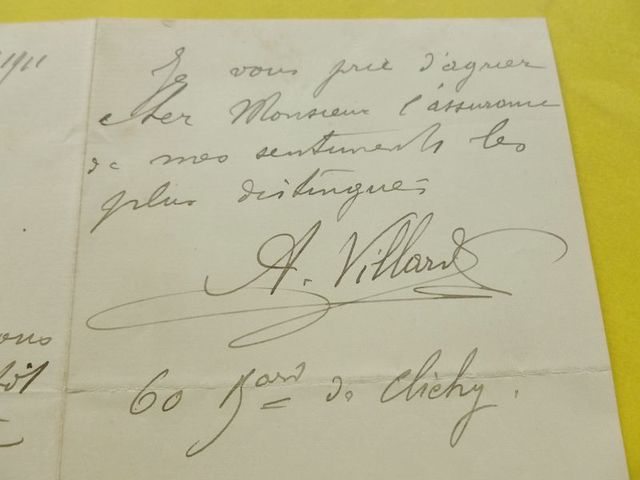 Je vous prie d'agréer
cher Monsieur l'assurance
de mes sentiments les
plus distingués
A. Villard
60 Bard de Clichy.